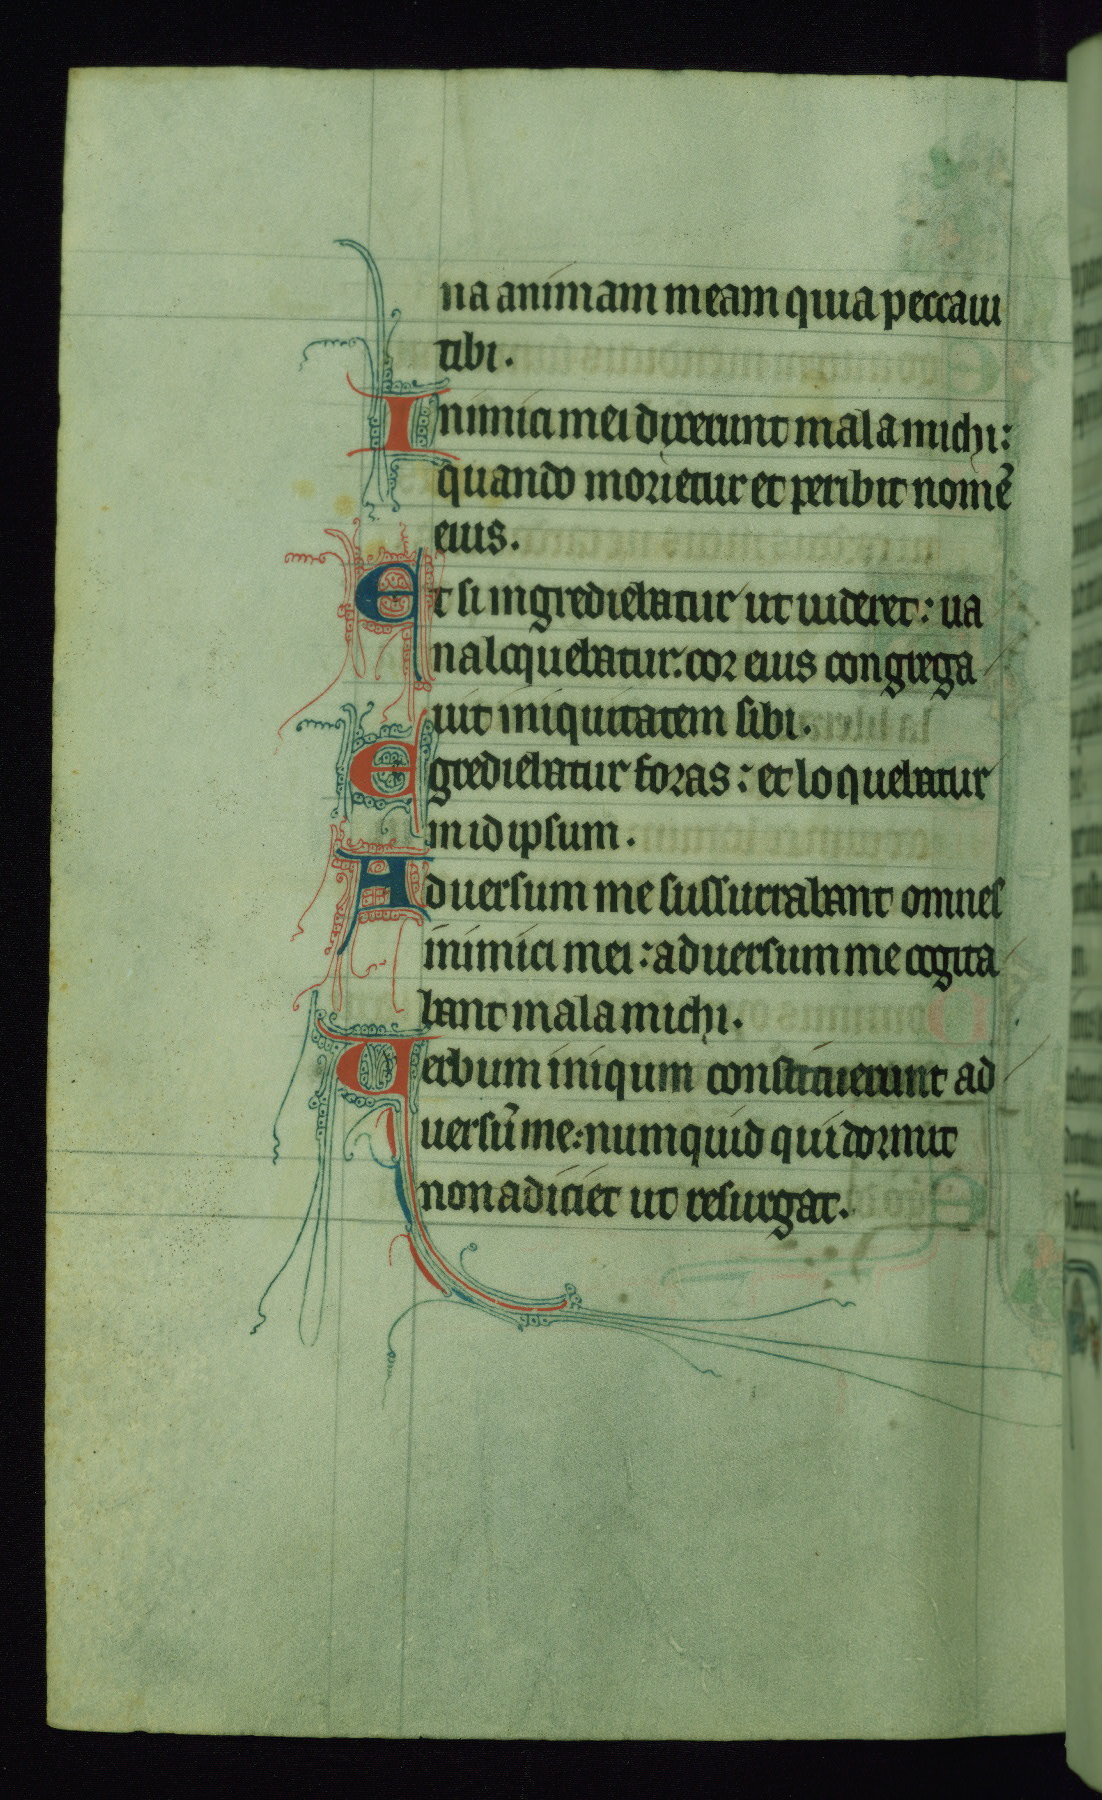 na animam meam quia peccaui
tibi.
Inimici mei dixerunt mala michi:
quando morietur et peribit nomē
eius.
Et si ingrediebatur ut uideret: ua
na loquebatur: cor eius congrega
uit iniquitatem sibi.
Egrediebatur foras: et loquebatur
in id ipsum.
Aduersum me susurrabant omnes
inimici mei: aduersum me cogita
bant mala michi.
Uerbum iniqum constituerunt ad
uersū me: numquid qui dormit
non adiciet ut resurgat.